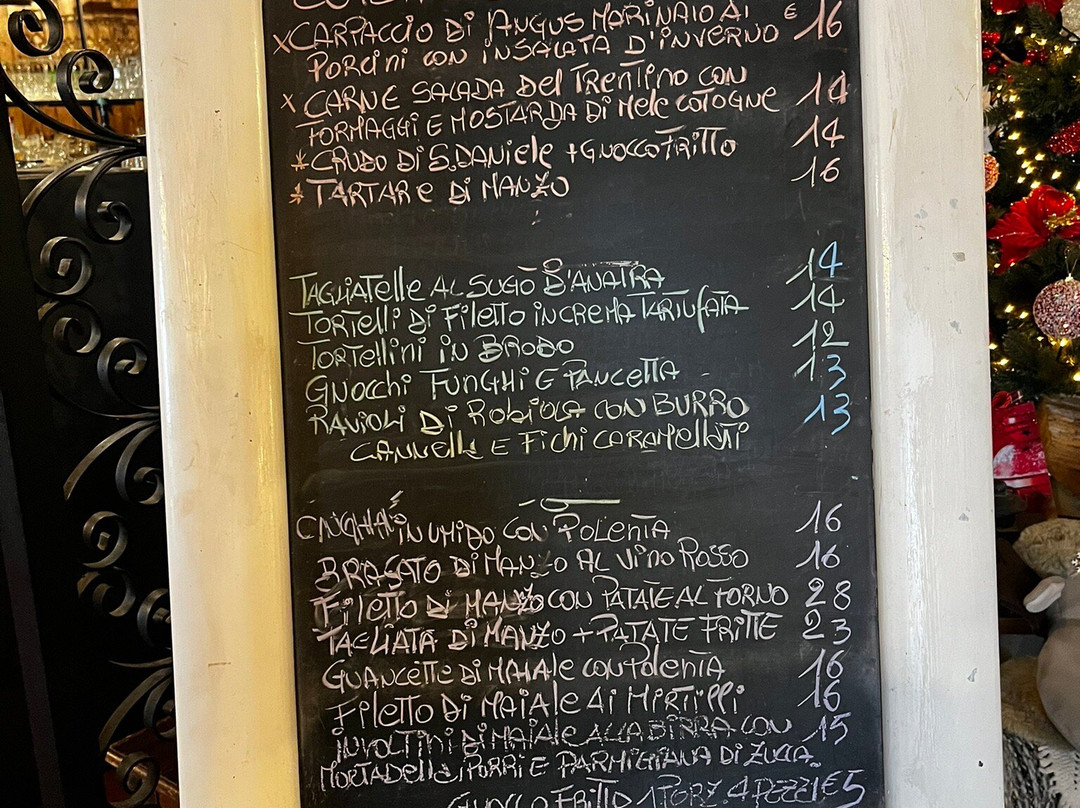 XCARPACCIO Di ANGUS MARINATO AI € 16
PORCINI CON INSALATA D'INVERNO
X CARNE SALADA Del TRENTINO CON
FORMAGGI E MOSTARDA DI Mele COTOGNE 14
*CRUDO DI S.DANIELE +GNOCCO FRITTO 14
*TARTARE DI MANZO 16
TAGLIATELLE AL SUGO D'ANATRA 14
TORTELLI DI FILETTO IN CREMA TARTUFATA 14
TORTELLINI IN BRODO 12
GNOCCHI FUNGHI E PANCETTA 13
RAVIOLI DI ROBIOLA CON BURRO 13
CANNELLA E FICHI CARAMELLATI
CINGHIALE IN UMIDO CON POLENTA 16
BRASATO DI MANZO AL VINO ROSSO 16
FILETTO DI MANZO CON PATATE AL FORNO 28
TAGLIATA DI MANZO + PATATE FRITTE 23
GUANCETTE DI MAIALE CON POLENTA 16
FILETTO DI MAIALE AI MIRTILLI 16
INVOLTINI DI MAIALE ALLA BIRRA CON 15
MORTADELLA, PORRI E PARMIGIANA DI ZUCCA
GNOCCO FRITTO 1 PORZ. 4 PEZZI € 5